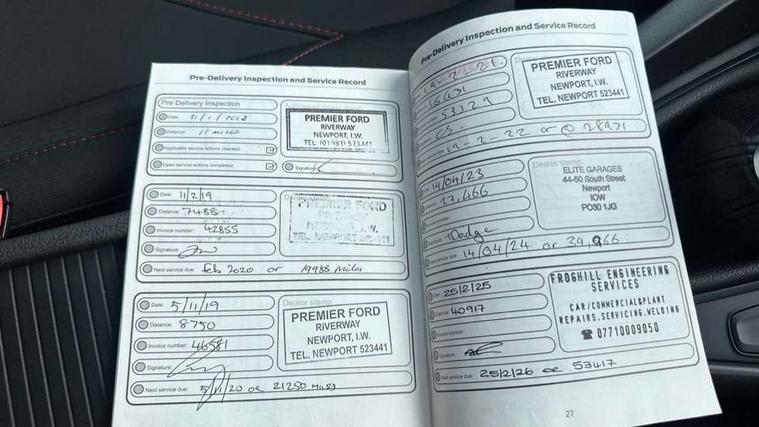 Pre-Delivery Inspection and Service Record
Pre Delivery Inspection
Date: 31/1/2018
Distance: 11 MILES
Applicable service actions checked:
Open service actions completed:
Signature:
PREMIER FORD
RIVERWAY
NEWPORT, I.W.
TEL: (01983) 523441
Date: 11/2/19
Distance: 7488
Invoice number: 42855
Signature:
Next service due: feb 2020 or 19988 Miles
PREMIER FORD
NEWPORT, I.W.
TEL. NEWPORT
Date: 5/11/19
Distance: 8750
Invoice number: 46581
Signature:
Next service due: 5/11/20 or 21250 MILES
Dealer stamp
PREMIER FORD
RIVERWAY
NEWPORT, I.W.
TEL. NEWPORT 523441
Pre-Delivery Inspection and Service Record
19-2-21.
16431
53129
19-2-22 or @ 28931
PREMIER FORD
RIVERWAY
NEWPORT, I.W.
TEL. NEWPORT 523441
14/04/23
27,466
Dodge
14/04/24 or 39,966
Dealer stamp
ELITE GARAGES
44-50 South Street
Newport
IOW
PO30 1JG
Date: 25/2/25
Distance: 40917
Invoice number:
Signature:
Next service due: 25/2/26 or 53417
FROGHILL ENGINEERING
SERVICES
CAR/COMMERCIAL&PLANT
REPAIRS.SERVICING.WELDING
☎ 07710009050
27